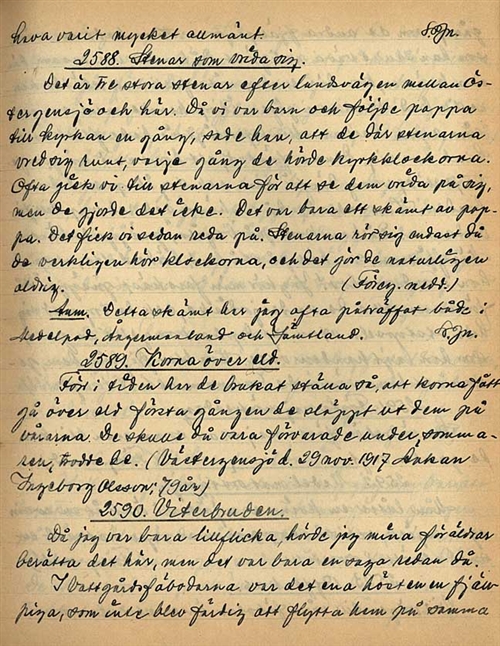 hava varit mycket allmänt. S.Jn.
2588. Stenar som vrida sig.
Det är tre stora stenar efter landsvägen mellan Ös-
tergensjö och här. Då vi var barn och följde pappa
till kyrkan en gång, sade han, att de där stenarna
vred sig runt, varje gång de hörde kyrkklockorna.
Ofta gick vi till stenarna för att se dem vrida på sig,
men de gjorde det icke. Det var bara ett skämt av pap-
pa. Det fick vi sedan reda på. Stenarna rör sig endast då
de verkligen hör klockorna, och det gör de naturligen
aldrig. (Föreg. medd.)
Anm. Detta skämt har jag ofta påträffat både i
Medelpad, Ångermanland och Jämtland. S.Jn.
2589. Korna över eld.
Förr i tiden har de brukat ställa så, att korna fått
gå över eld första gången de släppt ut dem på
vårarna. De skulle då vara förvarade under somma-
ren, trodde de. (Västergensjö d. 29 nov. 1917 Änkan
Ingeborg Olsson, 79 år)
2590. Viterbruden.
Då jag var bara lillflicka, hörde jag mina föräldrar
berätta det här, men det var bara en saga redan då.
I Vattgårdsfäbodarna var det ena hösten en fjäll-
piga, som inte blev färdig att flytta hem på samma